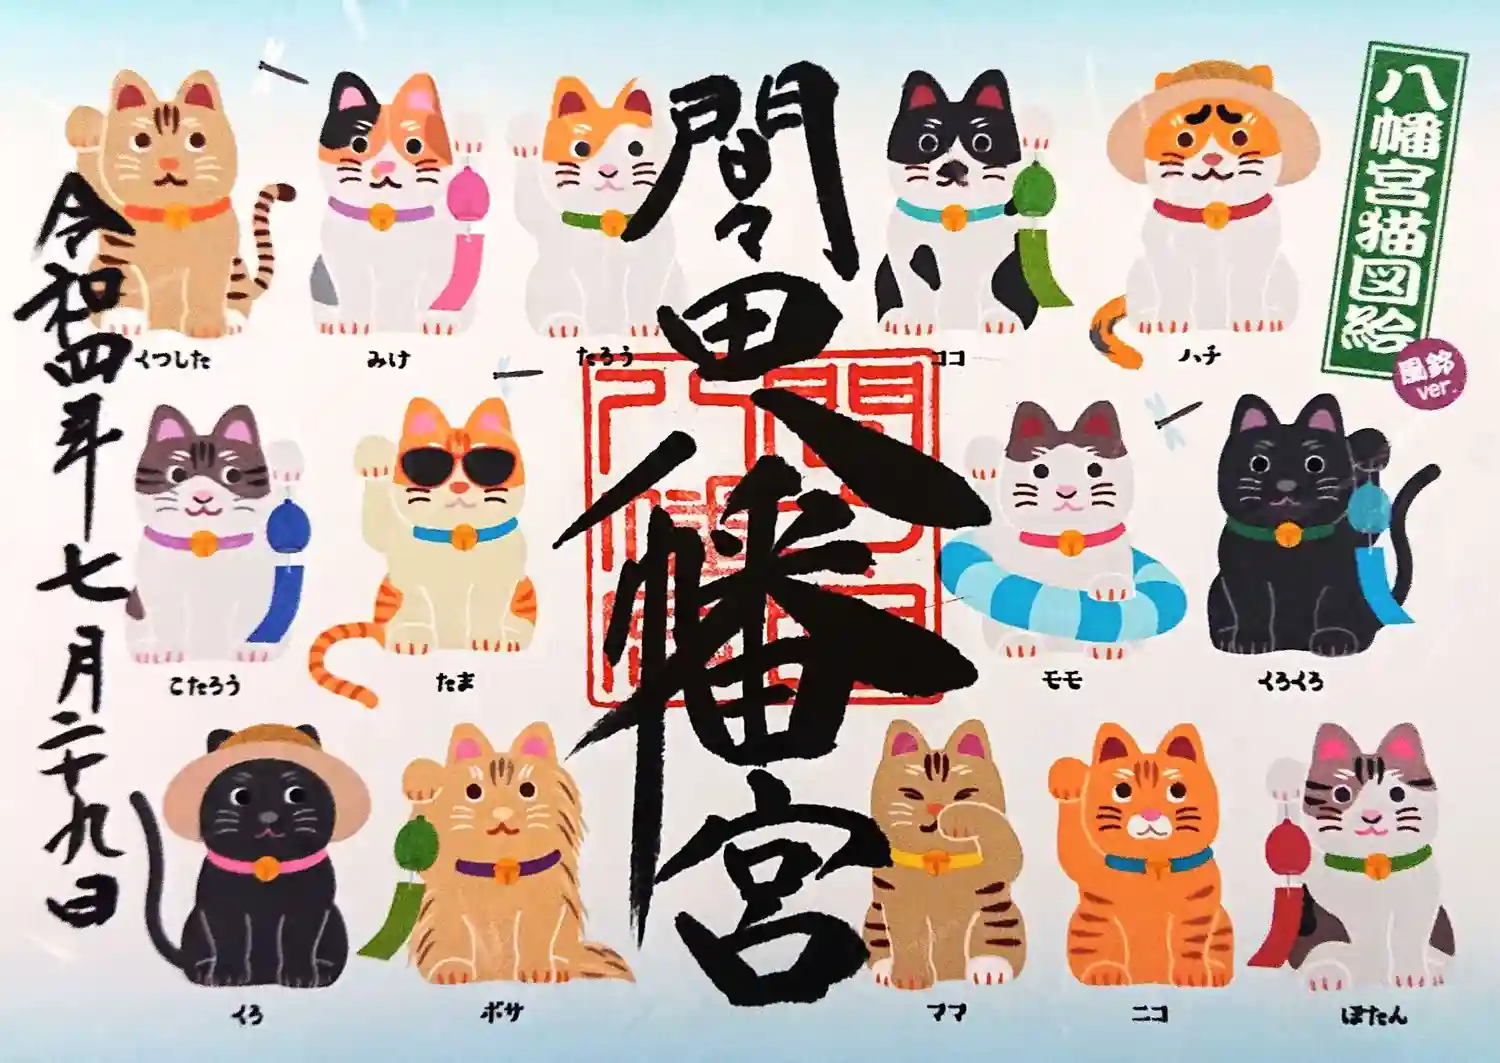 八幡宮猫図絵
風鈴
ver.
間々田八幡宮
令和四年七月二十九日
くつした
みけ
たろう
ココ
ハチ
こたろう
たま
モモ
くろくろ
くろ
ボサ
ママ
ニコ
ぼたん